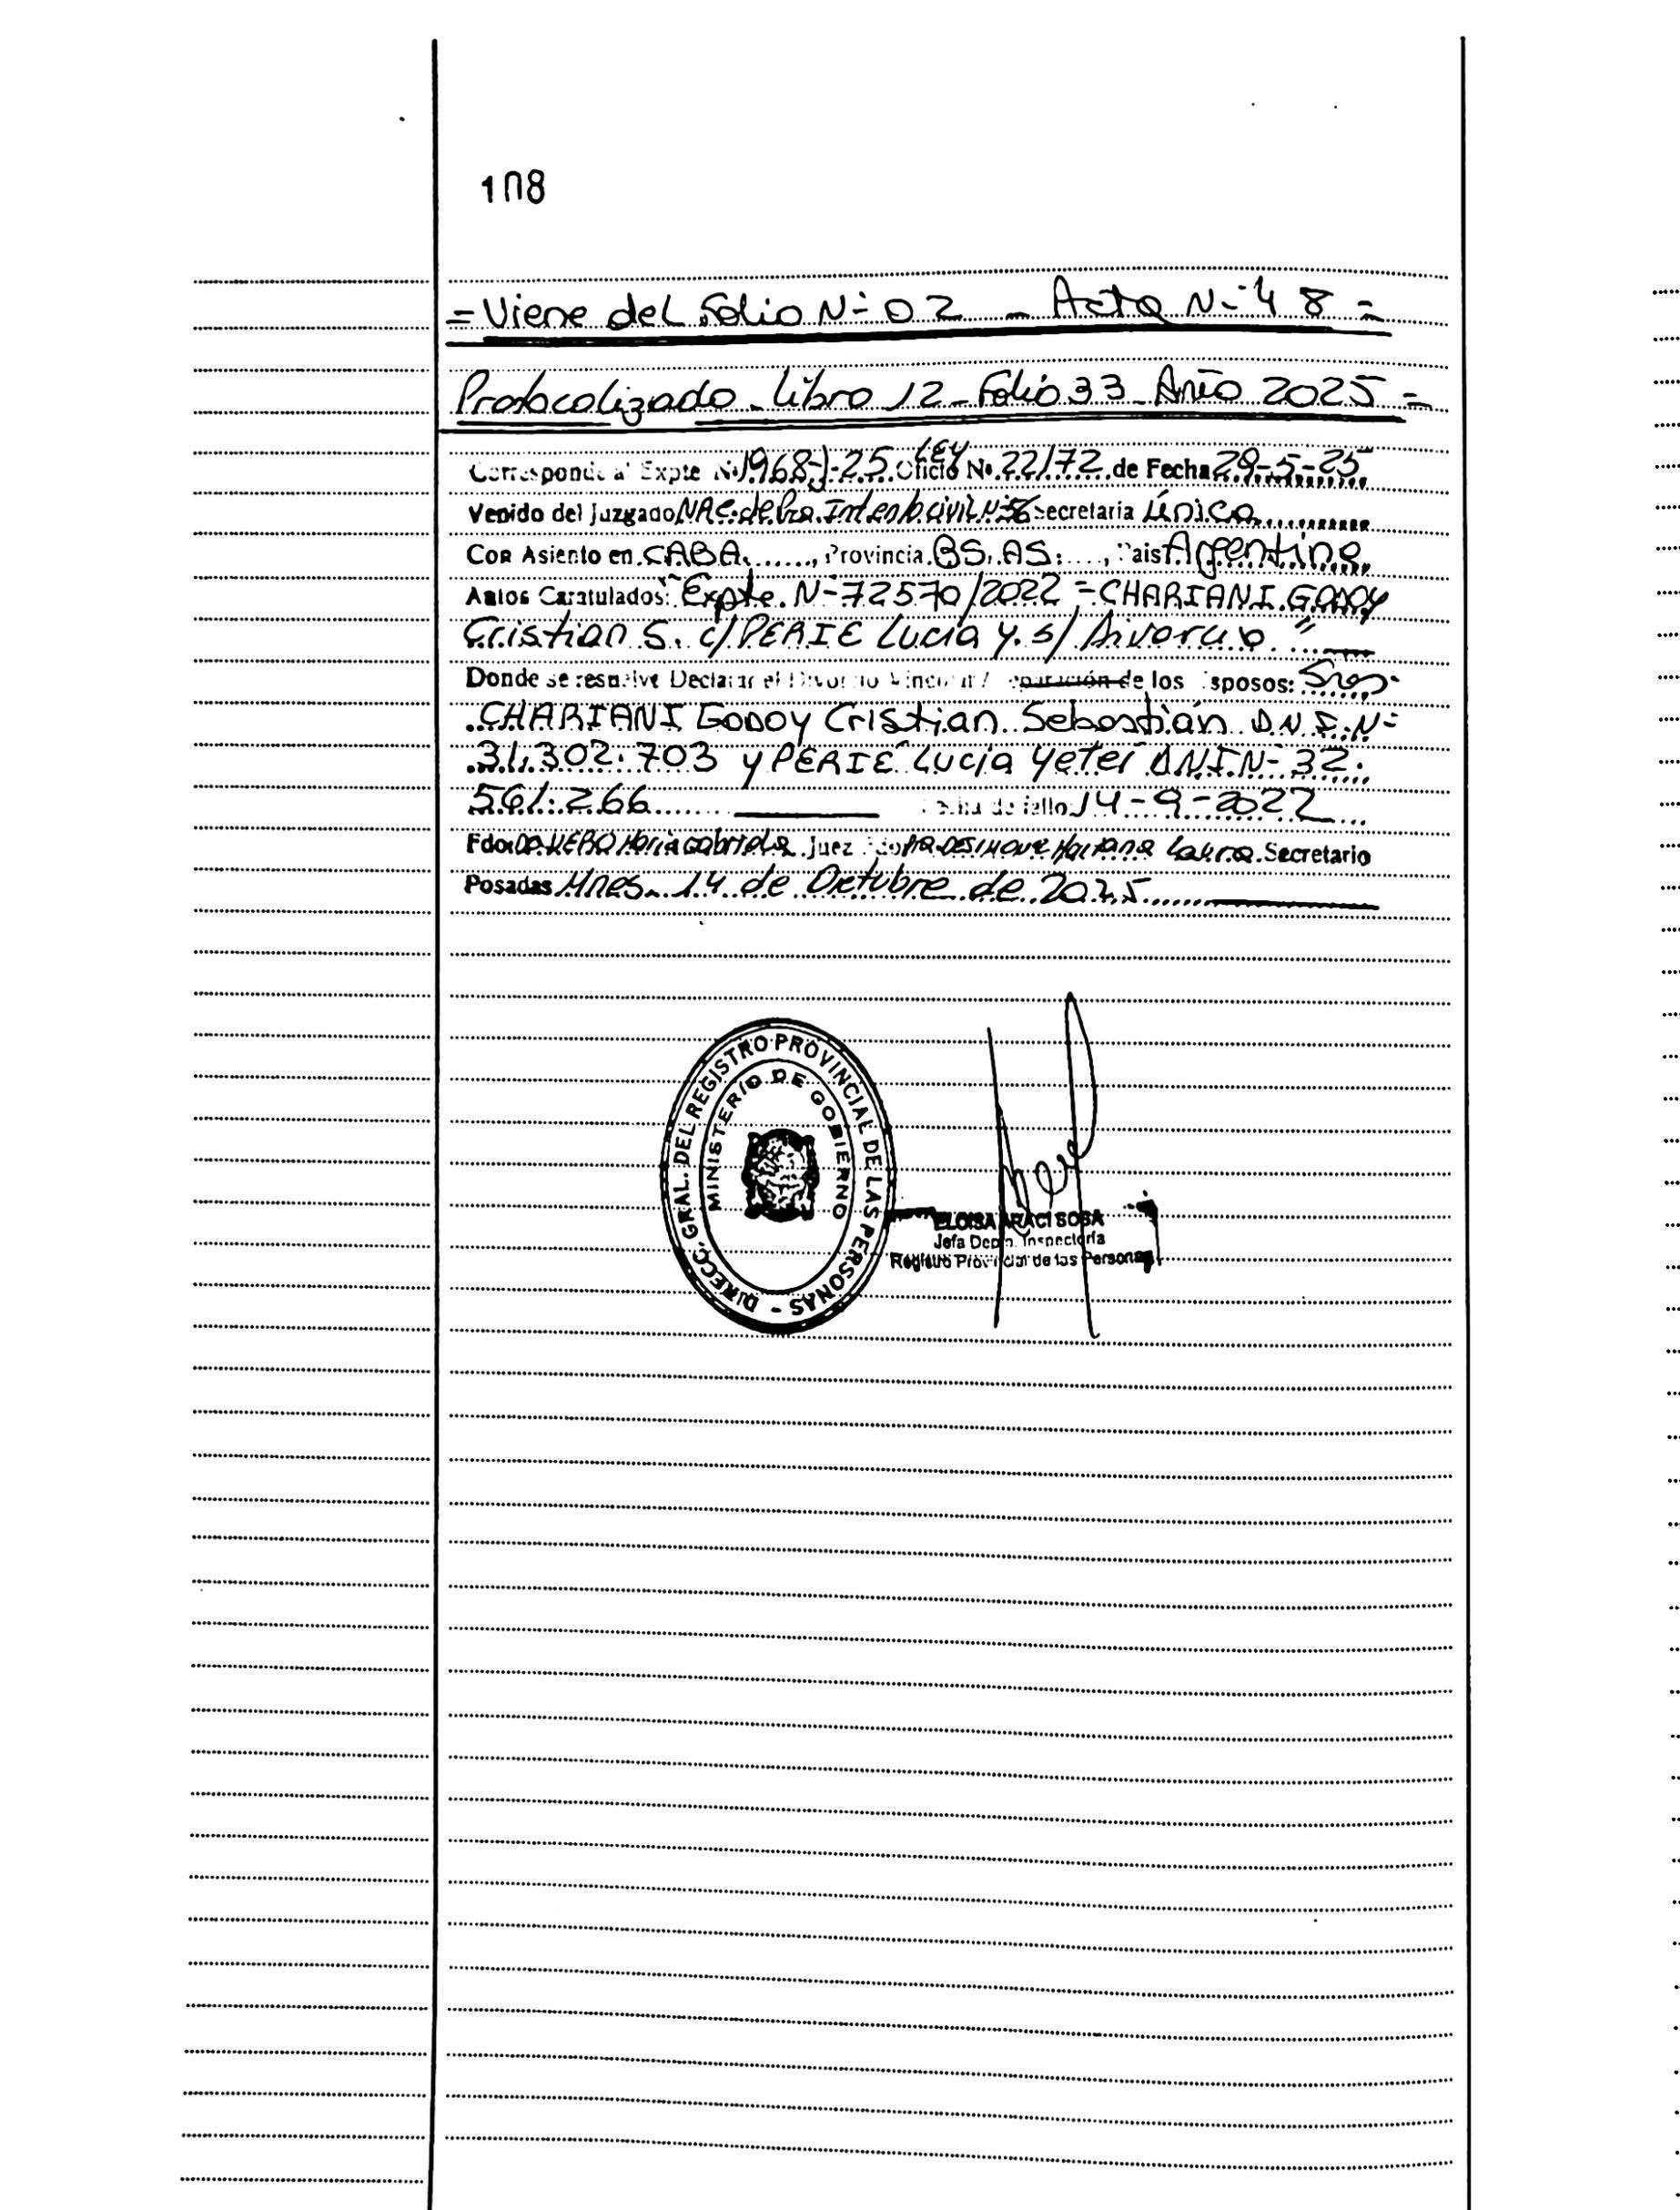 108
= Viene del folio N= 02 - Acta N= 48 =
Protocolizado - libro 12 - Folio 33 - Año 2025 =
Corresponde al Expte Nº 1968-J-25 Oficio LEY Nº 22172 de Fecha 29-5-25
Venido del Juzgado NAC. de Pra. Inst en lo civil Nº 56 Secretaria Única
Con Asiento en CABA, Provincia BS. AS., Pais Argentina
Autos Caratulados: "Expte. N=72570/2022 = CHARIANI GODOY
Cristian S. c/ PERIE Lucía Y. s/ Divorcio."
Donde se resuelve Declarar el Divorcio Vincular / Separación de los Esposos: Sres.
CHARIANI GODOY Cristian Sebastián D.N.I. N=
31.302.703 y PERIE Lucía Yeter DNI N= 32.
561.266 Fecha de fallo 14-9-2022
Fdo: María Gabriela Juez Fdo Mariana Laura Secretario
Posadas Mnes. 14 de Octubre de 2025
DIRECC. GRAL. DEL REGISTRO PROVINCIAL DE LAS PERSONAS -
MINISTERIO DE GOBIERNO
ELOISA ARACI SOSA
Jefa Depto. Inspectoría
Registro Provincial de las Personas